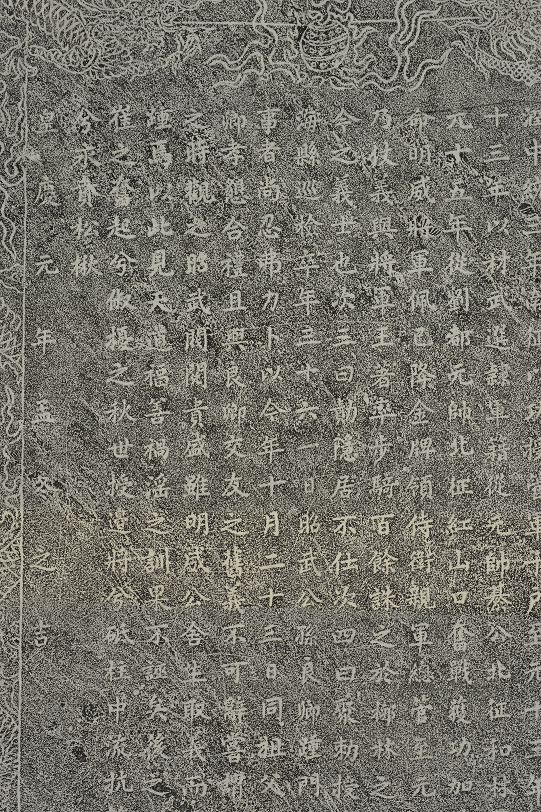 十三年以材武選隷軍籍從元帥綦公北征和林
元十五年從劉都元帥北征紅山口奮戰蔟功加
命明威將軍佩已降金牌領侍衛親軍總管至元
乃杖義與將軍王著率步騎百餘誅之於柳林之
今之義士也次三曰勣隱居不仕次四曰聚勑授
海縣巡檢卒年三十六一日昭武公孫良卿踵門
事者尚忍弗力卜以今年十月二十三日同祖父
卿孝懇合禮且與良卿交友之舊義不可辭嘗謂
之將觀之昭武閥閱貴盛雖明威公舍生取義而
踵焉以此見天道福善禍淫之訓果不誣矣後之
崔之奮起兮俶擾之秋世授遼將兮砥柱中流抗
兮永賁松楸
皇慶元年孟冬之吉